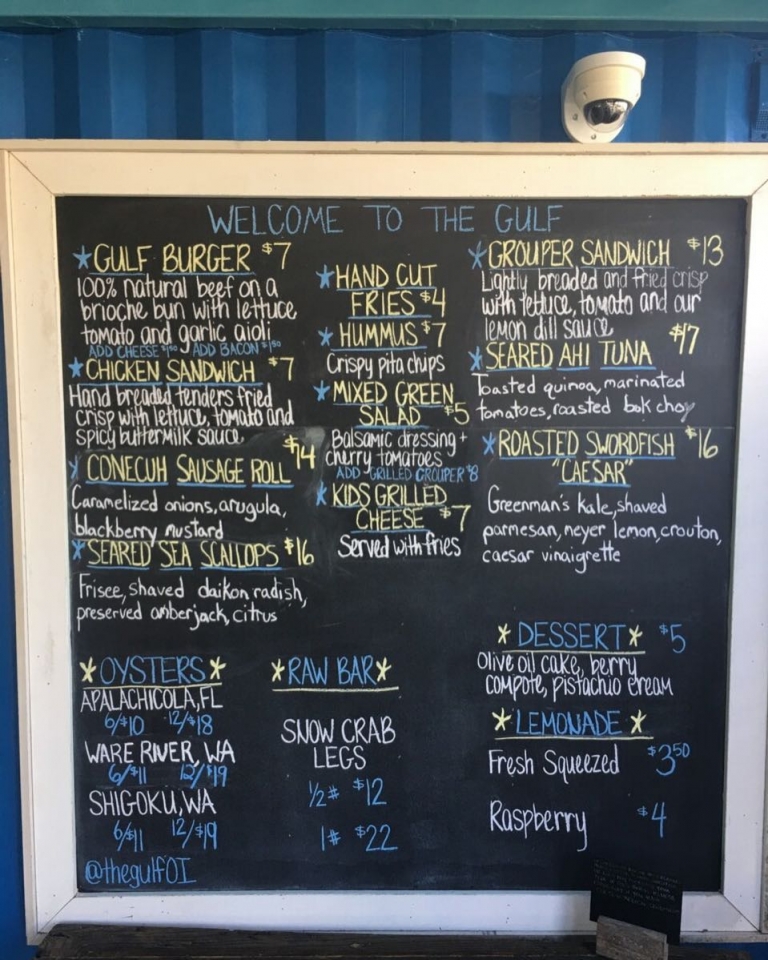 WELCOME TO THE GULF
*GULF BURGER $7
100% natural beef on a
brioche bun with lettuce
tomato and garlic aioli
ADD CHEESE $1.50 ADD BACON $1.50
*CHICKEN SANDWICH $7
Hand breaded tenders fried
crisp with lettuce, tomato and
spicy buttermilk sauce
*CONECUH SAUSAGE ROLL $14
Caramelized onions, arugula,
blackberry mustard
*SEARED SEA SCALLOPS $16
Frisee, shaved daikon radish,
preserved amberjack, citrus
*HAND CUT
FRIES $4
*HUMMUS $7
Crispy pita chips
*MIXED GREEN
SALAD $5
Balsamic dressing +
cherry tomatoes
ADD GRILLED GROUPER $8
*KIDS GRILLED
CHEESE $7
Served with fries
*GROUPER SANDWICH $13
Lightly breaded and fried crisp
with lettuce, tomato and our
lemon dill sauce
*SEARED AHI TUNA $17
Toasted quinoa, marinated
tomatoes, roasted bok choy
*ROASTED SWORDFISH $16
"CAESAR"
Greenman's kale, shaved
parmesan, meyer lemon, crouton,
caesar vinaigrette
*OYSTERS*
APALACHICOLA, FL
6/$10 12/$18
WARE RIVER, WA
6/$11 12/$19
SHIGOKU, WA
6/$11 12/$19
@thegulfOI
*RAW BAR*
SNOW CRAB
LEGS
1/2# $12
1# $22
*DESSERT* $5
Olive oil cake, berry
compote, pistachio cream
*LEMONADE*
Fresh Squeezed $3.50
Raspberry $4